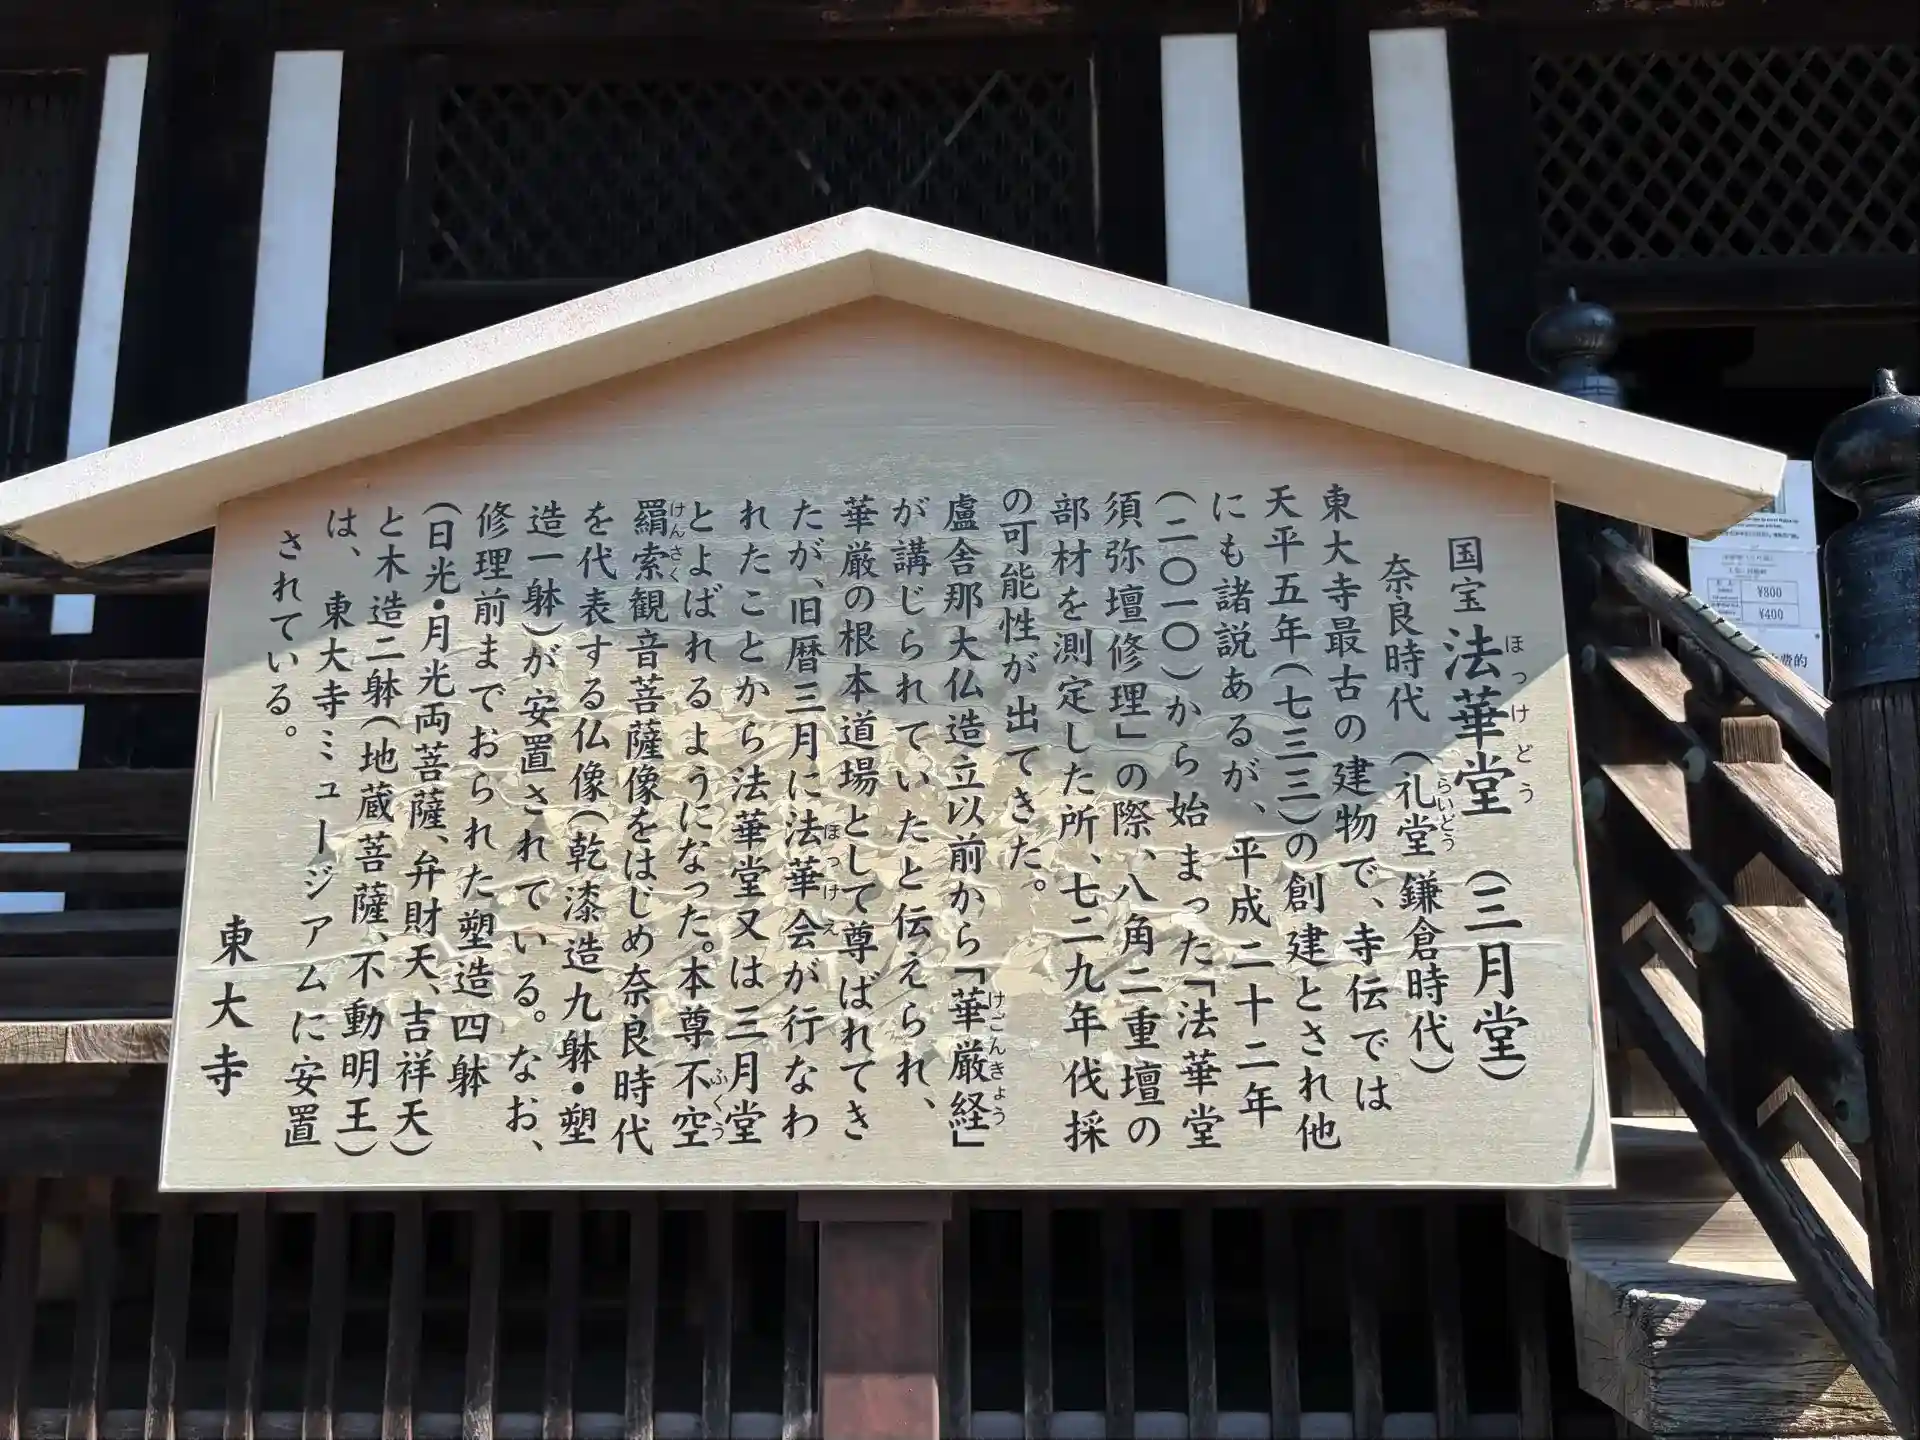 国宝 法華堂(三月堂)
ほっけどう
奈良時代(礼堂鎌倉時代)
らいどう
東大寺最古の建物で、寺伝では
天平五年(七三三)の創建とされ他
にも諸説あるが、平成二十二年
(二〇一〇)から始まった「法華堂
須弥壇修理」の際、八角二重壇の
部材を測定した所、七二九年伐採
の可能性が出てきた。
盧舎那大仏造立以前から「華厳経」
けごんきょう
が講じられていたと伝えられ、
華厳の根本道場として尊ばれてき
たが、旧暦三月に法華会が行なわ
ほっけえ
れたことから法華堂又は三月堂
とよばれるようになった。本尊不空
ふくう
羂索観音菩薩像をはじめ奈良時代
けんさく
を代表する仏像(乾漆造九躰・塑
造一躰)が安置されている。なお、
修理前までおられた塑造四躰
(日光・月光両菩薩、弁財天、吉祥天)
と木造二躰(地蔵菩薩、不動明王)
は、東大寺ミュージアムに安置
されている。
東大寺
¥800
¥400